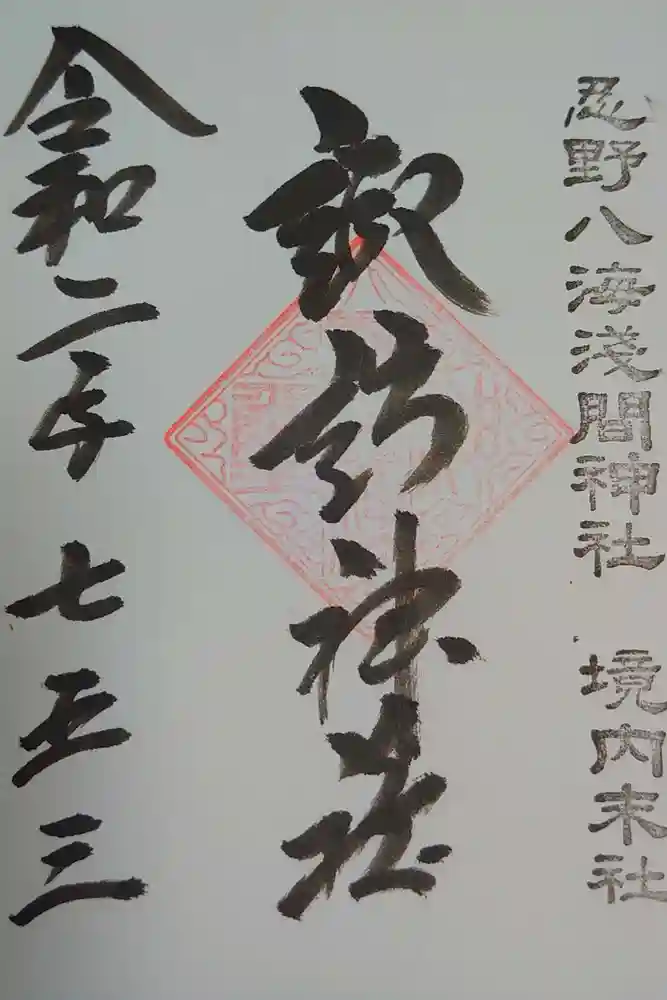 忍野八海淺間神社 境内末社
神社
令和二年 七五三